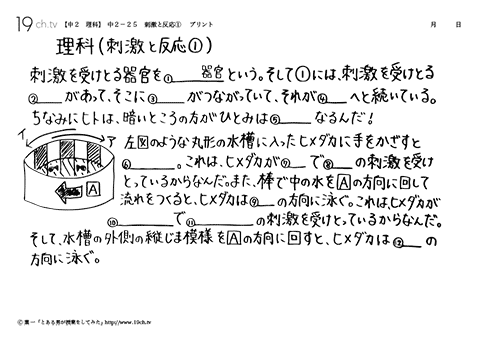 19ch.tv 【中2 理科】 中2-25 刺激と反応① プリント 月 日
理科(刺激と反応①)
刺激を受けとる器官を①____器官という。そして①には、刺激を受けとる
②____があって、そこに③____がつながっていて、それが④____へと続いている。
ちなみにヒトは、暗いところの方がひとみは⑤____なるんだ!
イ ア A
左図のような丸形の水槽に入ったヒメダカに手をかざすと
⑥____。これは、ヒメダカが⑦____で⑧____の刺激を受け
とっているからなんだ。また、棒で中の水をAの方向に回して
流れをつくると、ヒメダカは⑨____の方向に泳ぐ。これは、ヒメダカが
⑩____で⑪____の刺激を受けとっているからなんだ。
そして、水槽の外側の縦じま模様をAの方向に回すと、ヒメダカは⑫____の
方向に泳ぐ。
©葉一「とある男が授業をしてみた」http://www.19ch.tv